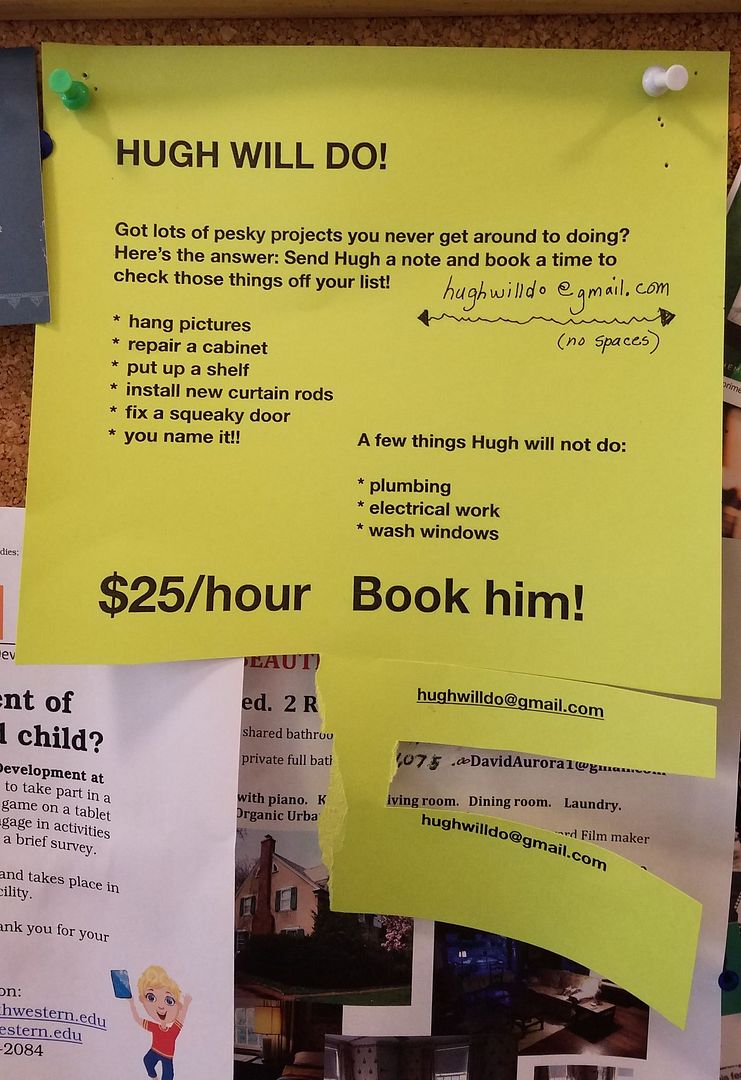 HUGH WILL DO!
Got lots of pesky projects you never get around to doing?
Here's the answer: Send Hugh a note and book a time to
check those things off your list!
hughwilldo@gmail.com
(no spaces)
* hang pictures
* repair a cabinet
* put up a shelf
* install new curtain rods
* fix a squeaky door
* you name it!!
A few things Hugh will not do:
* plumbing
* electrical work
* wash windows
$25/hour Book him!
hughwilldo@gmail.com
hughwilldo@gmail.com
dies:
ent of
child?
Development at
to take part in a
game on a tablet
ngage in activities
a brief survey.
and takes place in
cility.
ank you for your
on:
thwestern.edu
estern.edu
-2084
BEAUT
ed. 2 R
shared bathroo
private full bath
DavidAurora1@gmail.com
with piano. K
iving room. Dining room. Laundry.
Organic Urba
rd Film maker